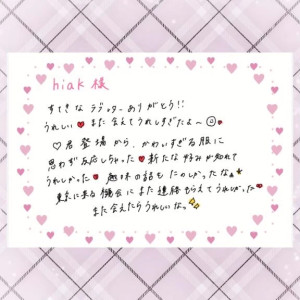 hiak 様
すてきな ラブレター ありがとう!!
うれしい❤また 会えて うれしすぎたよ〜☺
♡君 登場から、かわいすぎる服に
思わず反応しちゃった❤新たな好みが知れて
うれしかった❤趣味の話も たのしかったな★
東京に来る機会に また連絡もらえてうれしかった❤
また会えたらうれしいなっ